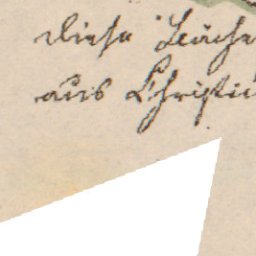 diese Bäche
aus Christi